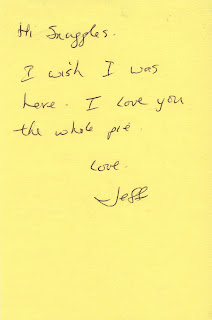 Hi Snuggles.
I wish I was
here. I love you
the whole pie.
Love.
Jeff